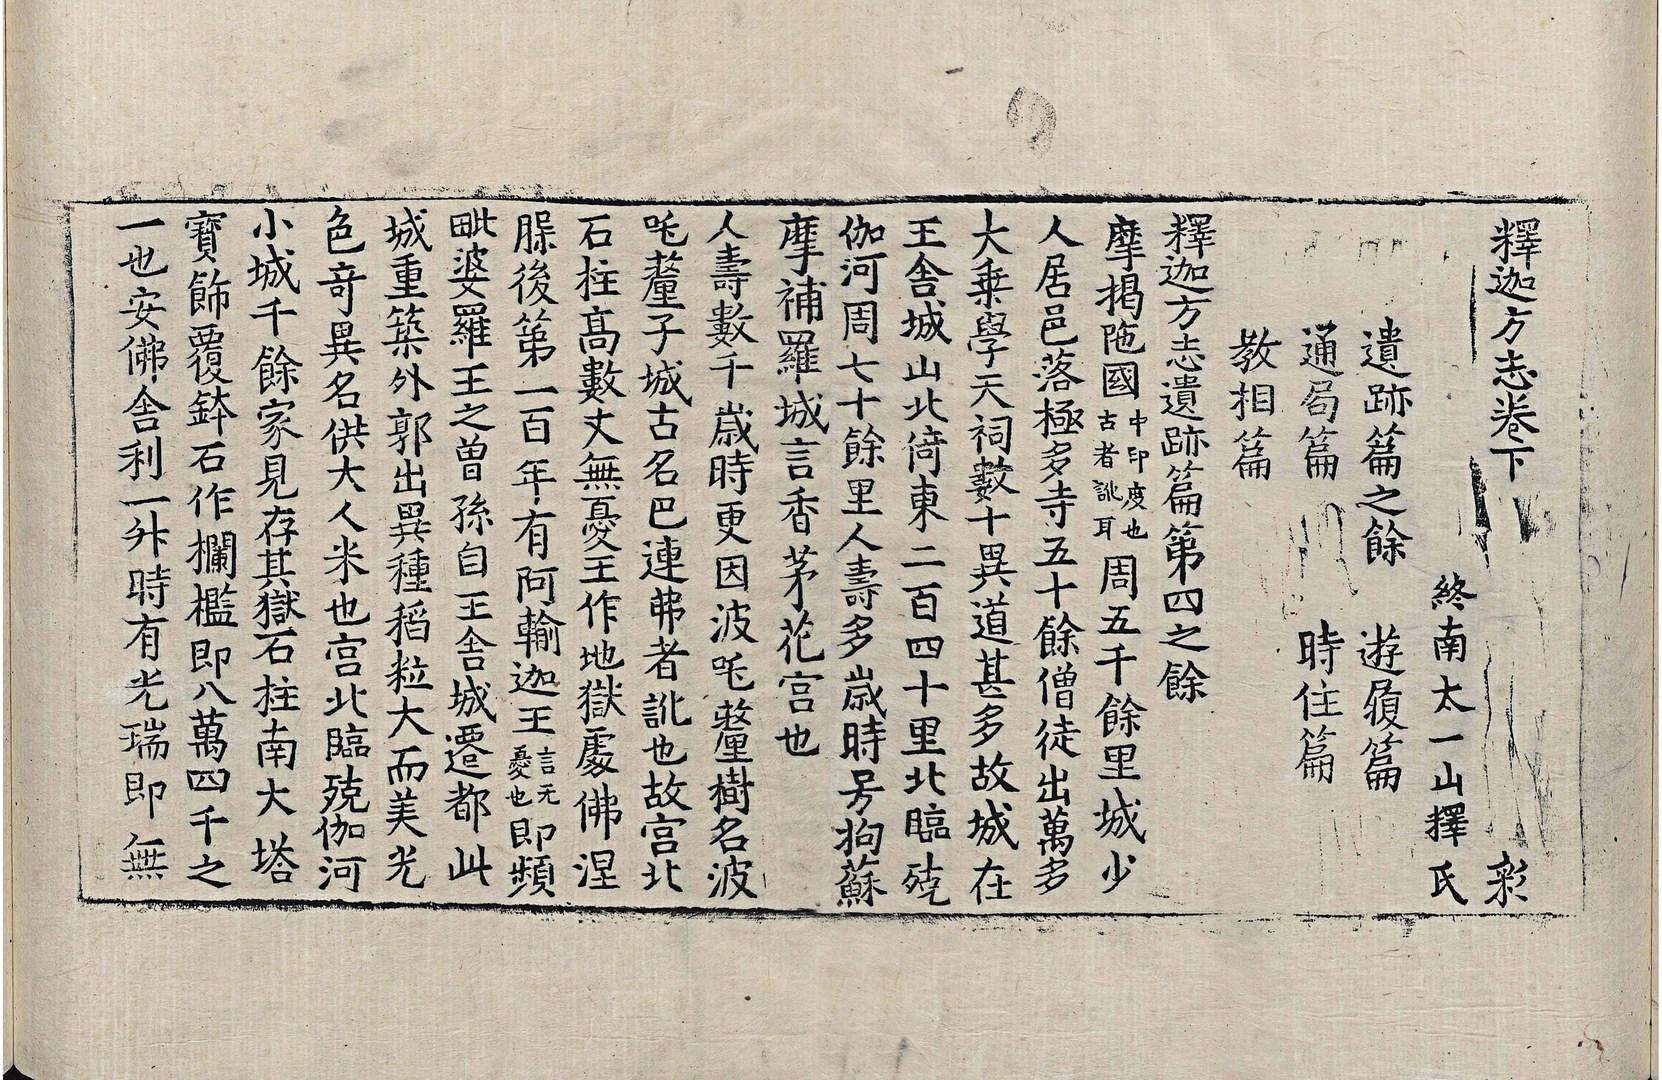 釋迦方志卷下 彩
終南太一山釋氏
遺跡篇之餘 遊履篇
通局篇 時住篇
教相篇
釋迦方志遺跡篇第四之餘
摩揭陁國中印度也古者訛耳周五千餘里城少
人居邑落極多寺五十餘僧徒出萬多
大乗學天祠數十異道甚多故城在
王舍城山北倚東二百四十里北臨殑
伽河周七十餘里人壽多歲時号拘蘇
摩補羅城言香茅花宮也
人壽數千歲時更因波吒釐樹名波
吒釐子城古名巴連弗者訛也故宮北
石柱髙數丈無憂王作地獄處佛涅
腂後第一百年有阿輸迦王言无憂也即頻
毗婆羅王之曽孫自王舍城遷都此
城重築外郭出異種稻粒大而美光
色竒異名供大人米也宮北臨殑伽河
小城千餘家見存其獄石柱南大塔
寶飾覆鉢石作欄檻即八萬四千之
一也安佛舍利一升時有光瑞即無